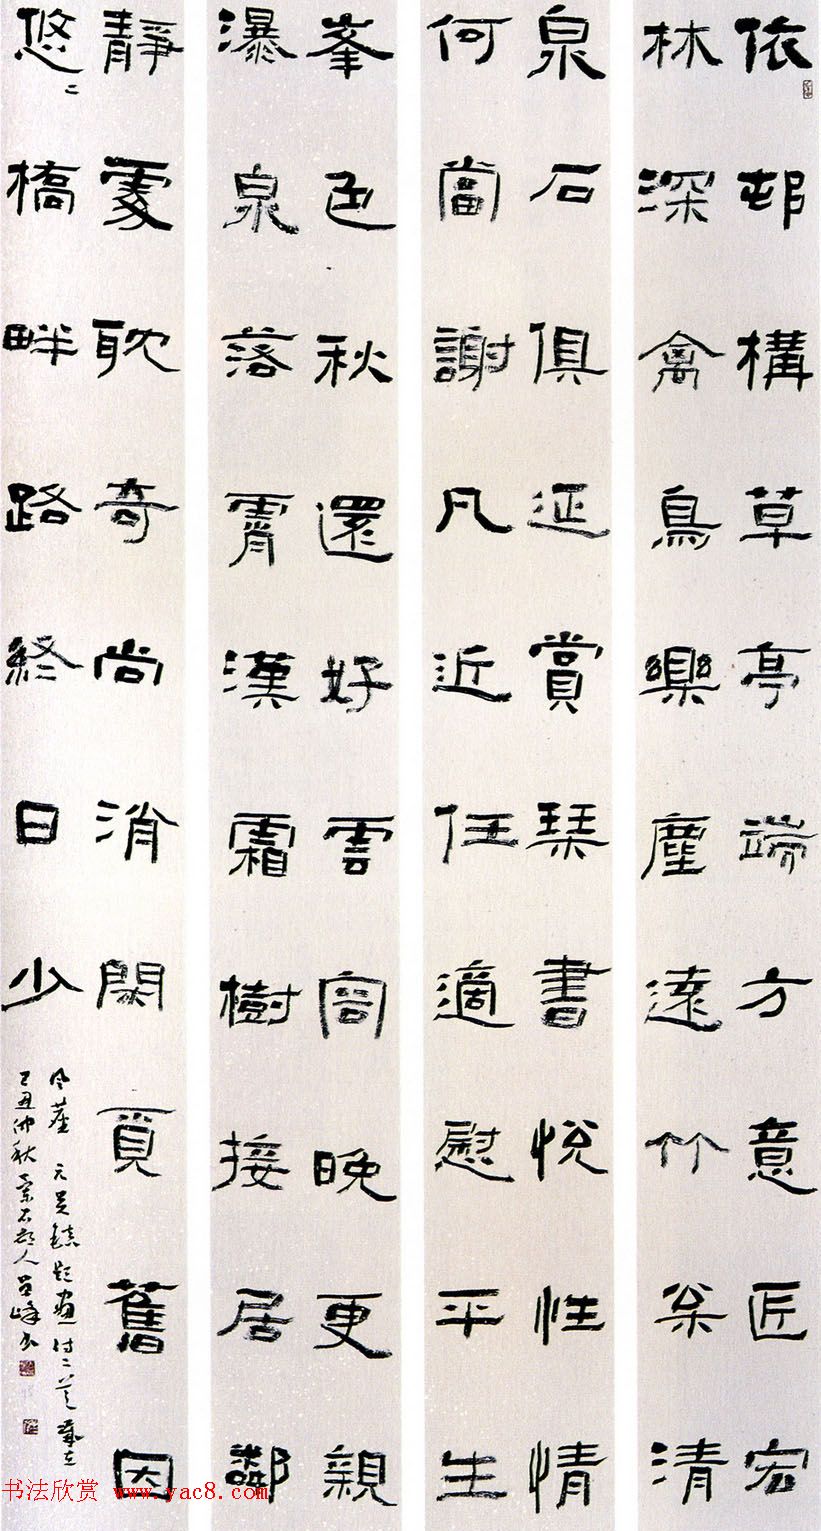 依邨構草亭端方意匠宏
林深禽鳥樂塵遠竹枀清
泉石俱延賞琴書悅性情
何當謝凡近任適慰平生
峯色秋還好雲容晚更親
瀑泉落霄漢霜樹接居鄰
靜處耽奇尚消閑覓舊因
悠二橋畔路終日少
風塵 元吳鎮題畫詩二首
己丑仲秋人呂峰書
书法欣赏 www.yac8.com